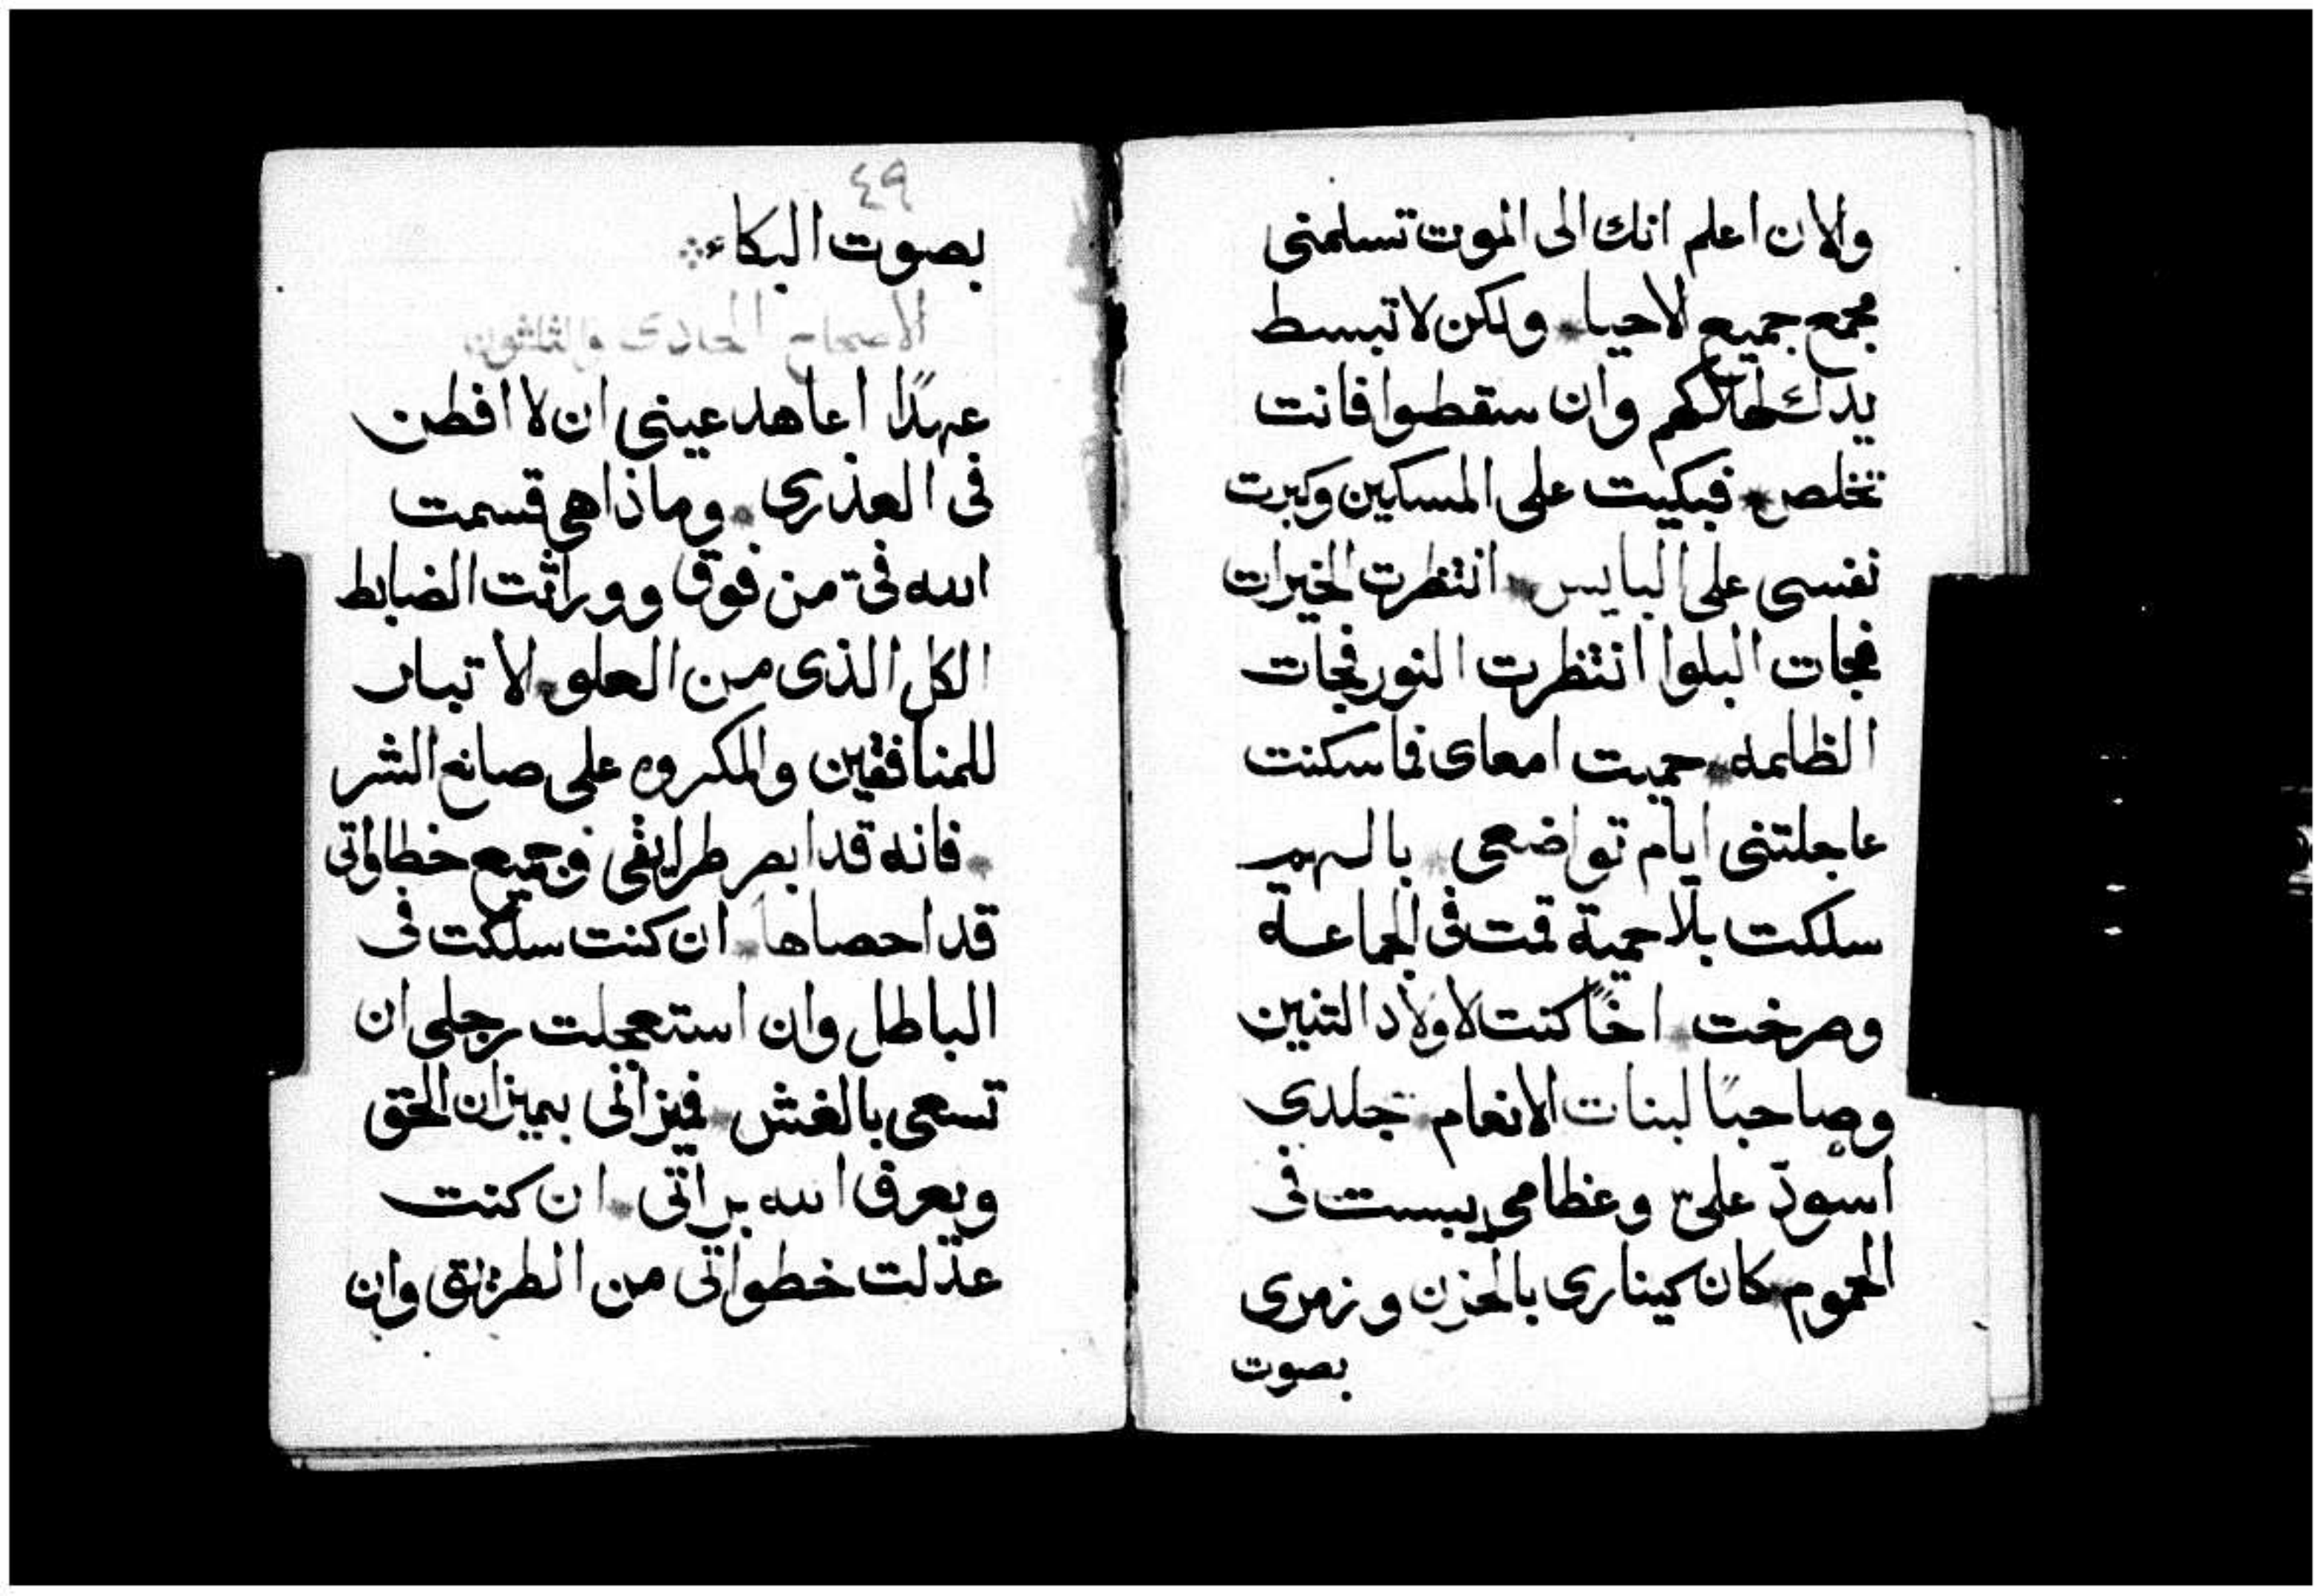 ولان اعلم انك الى الموت تسلمنى
مجمع جميع الاحيا ولكن لا تبسط
يدك لهلاكهم وان سقطوا فانت
تخلص فبكيت على المسكين وكبرت
نفسى على البايس انتظرت الخيرات
فجات البلوا انتظرت النور فجات
الظلمه حميت امعاى فما سكنت
عاجلتنى ايام تواضعى بالهم
سلكت بلا حمية قمت فى الجماعة
وصرخت اخًا كنت لاولاد التنين
وصاحبًا لبنات الانعام جلدى
اسودّ علىّ وعظامى يبست فى
الحموم كان كينارى بالحزن وزمرى
بصوت
٤٩
بصوت البكاء
الاصحاح الحادى والثلثون
عهدًا اعاهد عينى ان لا افطن
فى العذرى وماذا هى قسمت
الله فىّ من فوق ووراثت الضابط
الكل الذى من العلو الا تبار
للمنافقين والمكروه على صانع الشر
فانه قد ابصر طرايقى وجميع خطاواتى
قد احصاها ان كنت سلكت فى
الباطل وان استعجلت رجلى ان
تسعى بالغش فيزانى بميزان الحق
ويعرف الله براتى ان كنت
عدلت خطواتى من الطريق وان